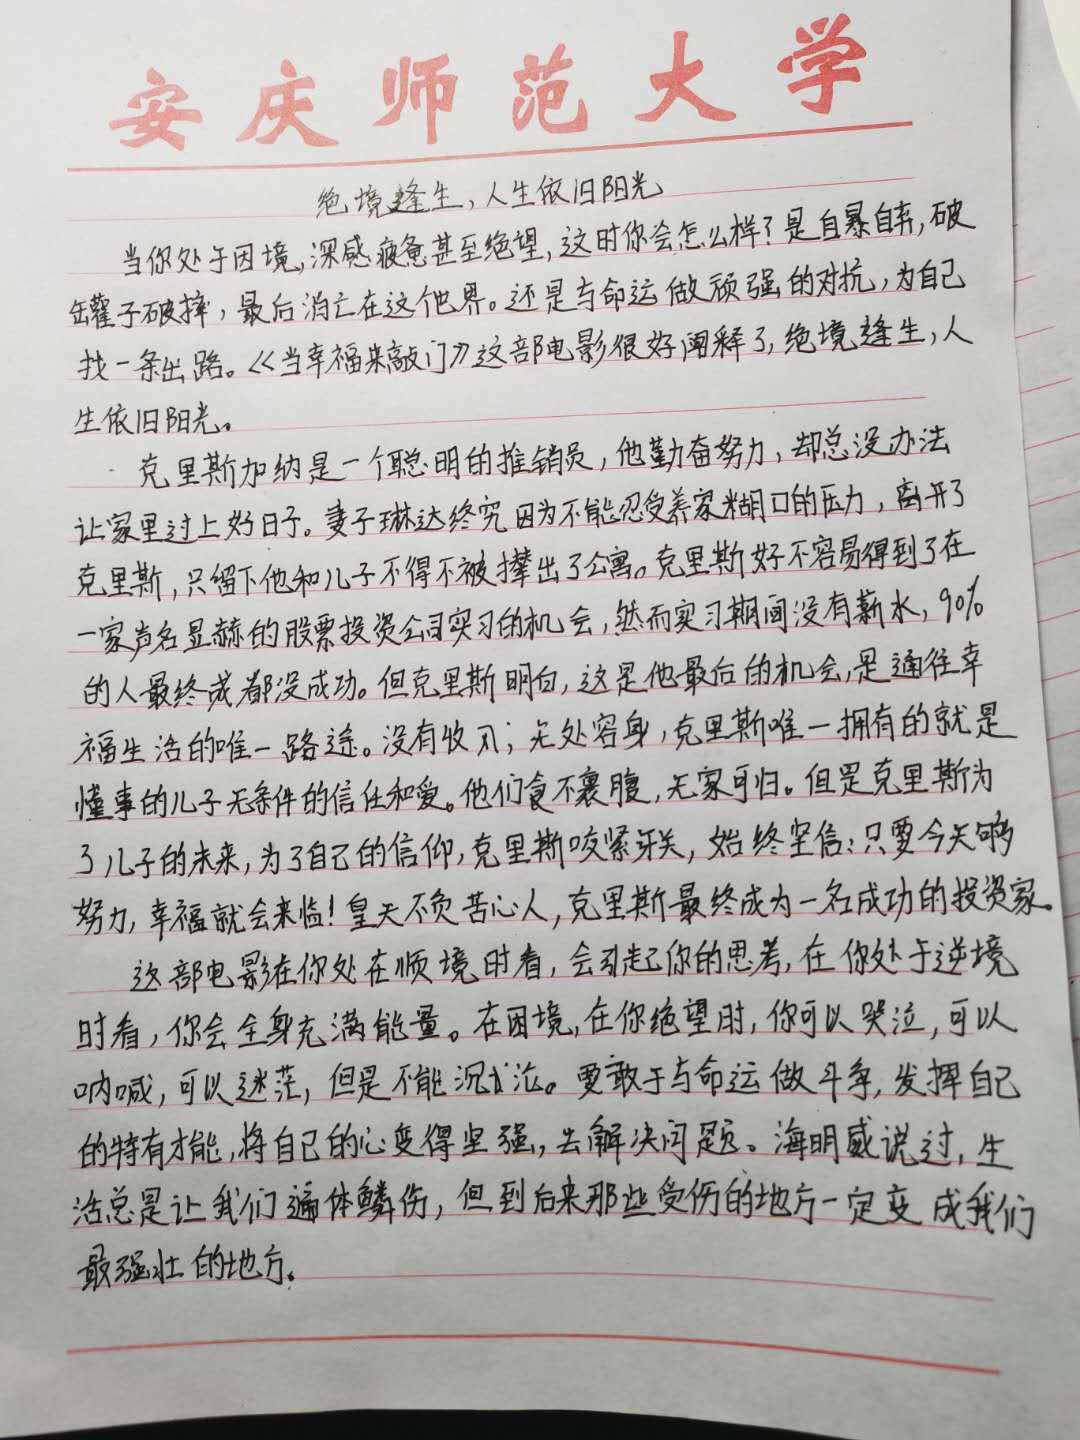 安庆师范大学
绝境逢生，人生依旧阳光
当你处于困境，深感疲惫甚至绝望，这时你会怎么样？是自暴自弃，破
罐子破摔，最后消亡在这个世界。还是与命运做顽强的对抗，为自己
找一条出路。《当幸福来敲门》这部电影很好阐释了，绝境逢生，人
生依旧阳光。
克里斯加纳是一个聪明的推销员，他勤奋努力，却总没办法
让家里过上好日子。妻子琳达终究因为不能忍受养家糊口的压力，离开了
克里斯，只留下他和儿子不得不被撵出了公寓。克里斯好不容易得到了在
一家声名显赫的股票投资公司实习的机会，然而实习期间没有薪水，90%
的人最终都没成功。但克里斯明白，这是他最后的机会，是通往幸
福生活的唯一路途。没有收入；无处容身，克里斯唯一拥有的就是
懂事的儿子无条件的信任和爱。他们食不裹腹，无家可归。但是克里斯为
了儿子的未来，为了自己的信仰，克里斯咬紧牙关，始终坚信：只要今天够
努力，幸福就会来临！皇天不负苦心人，克里斯最终成为一名成功的投资家。
这部电影在你处在顺境时看，会引起你的思考，在你处于逆境
时看，你会全身充满能量。在困境，在你绝望时，你可以哭泣，可以
呐喊，可以迷茫，但是不能沉沦。要敢于与命运做斗争，发挥自己
的特有才能，将自己的心变得坚强，去解决问题。海明威说过，生
活总是让我们遍体鳞伤，但到后来那些受伤的地方一定变成我们
最强壮的地方。